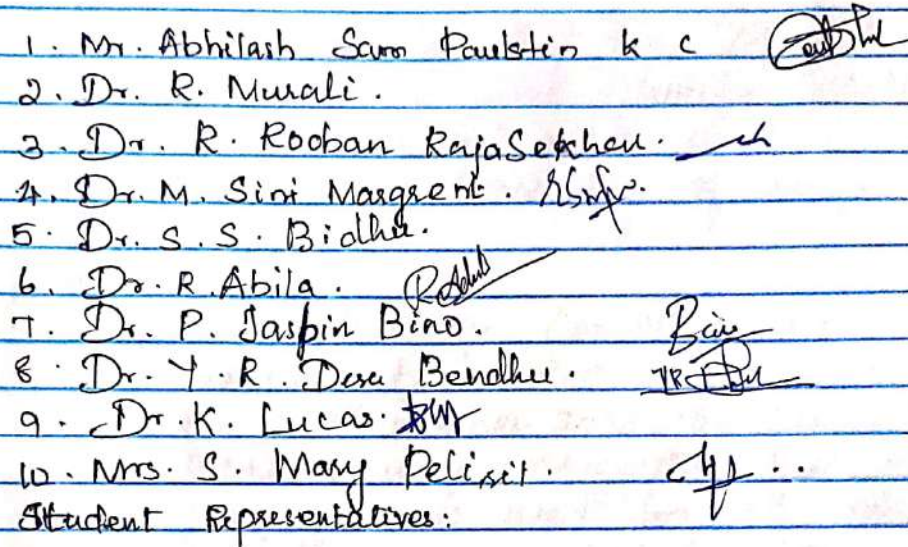 1. Mr. Abhilash Sam Paulstin k c
2. Dr. R. Murali.
3. Dr. R. Rooban RajaSekhar.
4. Dr. M. Sini Margret.
5. Dr. S. S. Bidhu.
6. Dr. R. Abila.
7. Dr. P. Jaspin Bino.
8. Dr. Y. R. Desu Bendhu.
9. Dr. K. Lucas.
10. Mrs. S. Mary
Student Representatives: